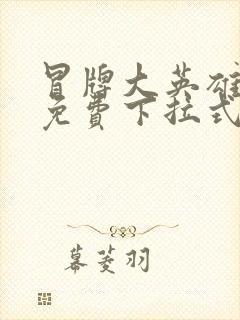 冒牌大英雄
免費下拉式
幕菱羽